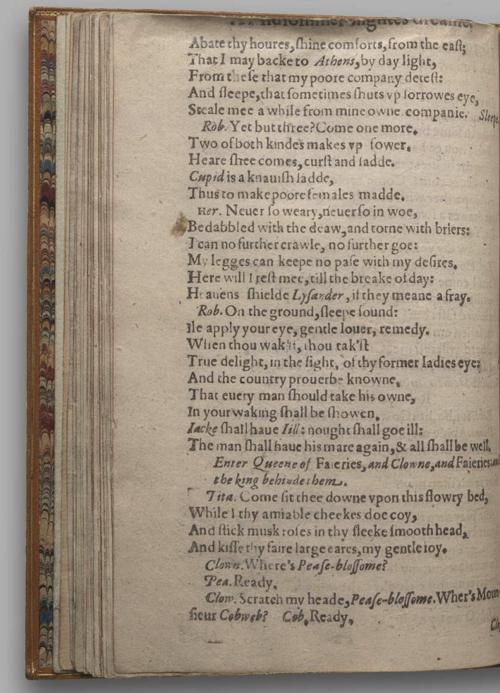 A Midsommer nightes dreame.
Abate thy houres, shine comforts, from the east;
That I may backe to Athens, by day light,
From these that my poore company detest:
And sleepe, that sometimes shuts vp sorrowes eye,
Steale mee a while from mine owne companie. Sleepe
Rob. Yet but three? Come one more.
Two of both kindes makes vp fower.
Heare shee comes, curst and sadde.
Cupid is a knauish ladde,
Thus to make poore females madde.
Her. Neuer so weary, neuer so in woe,
Bedabbled with the deaw, and torne with briers:
I can no further crawle, no further goe:
My legges can keepe no pase with my desires.
Here will I rest mee, till the breake of day:
Heauens shielde Lysander, if they meane a fray.
Rob. On the ground, sleepe sound:
Ile apply your eye, gentle louer, remedy.
When thou wak'st, thou tak'st
True delight, in the sight, of thy former ladies eye:
And the country prouerbe knowne,
That euery man should take his owne,
In your waking shall be showen.
Iacke shall haue Iill: nought shall goe ill:
The man shall haue his mare again, & all shall be well.
Enter Queene of Faieries, and Clowne, and Faieries: and
the king behinde them.
Tita. Come sit thee downe vpon this flowry bed,
While I thy amiable cheekes doe coy,
And stick musk roses in thy sleeke smooth head,
And kisse thy faire large eares, my gentle ioy.
Clown. Where's Pease-blossome?
Pea. Ready.
Clow. Scratch my heade, Pease-blossome. Wher's Moun-
sieur Cobweb? Cob. Ready.